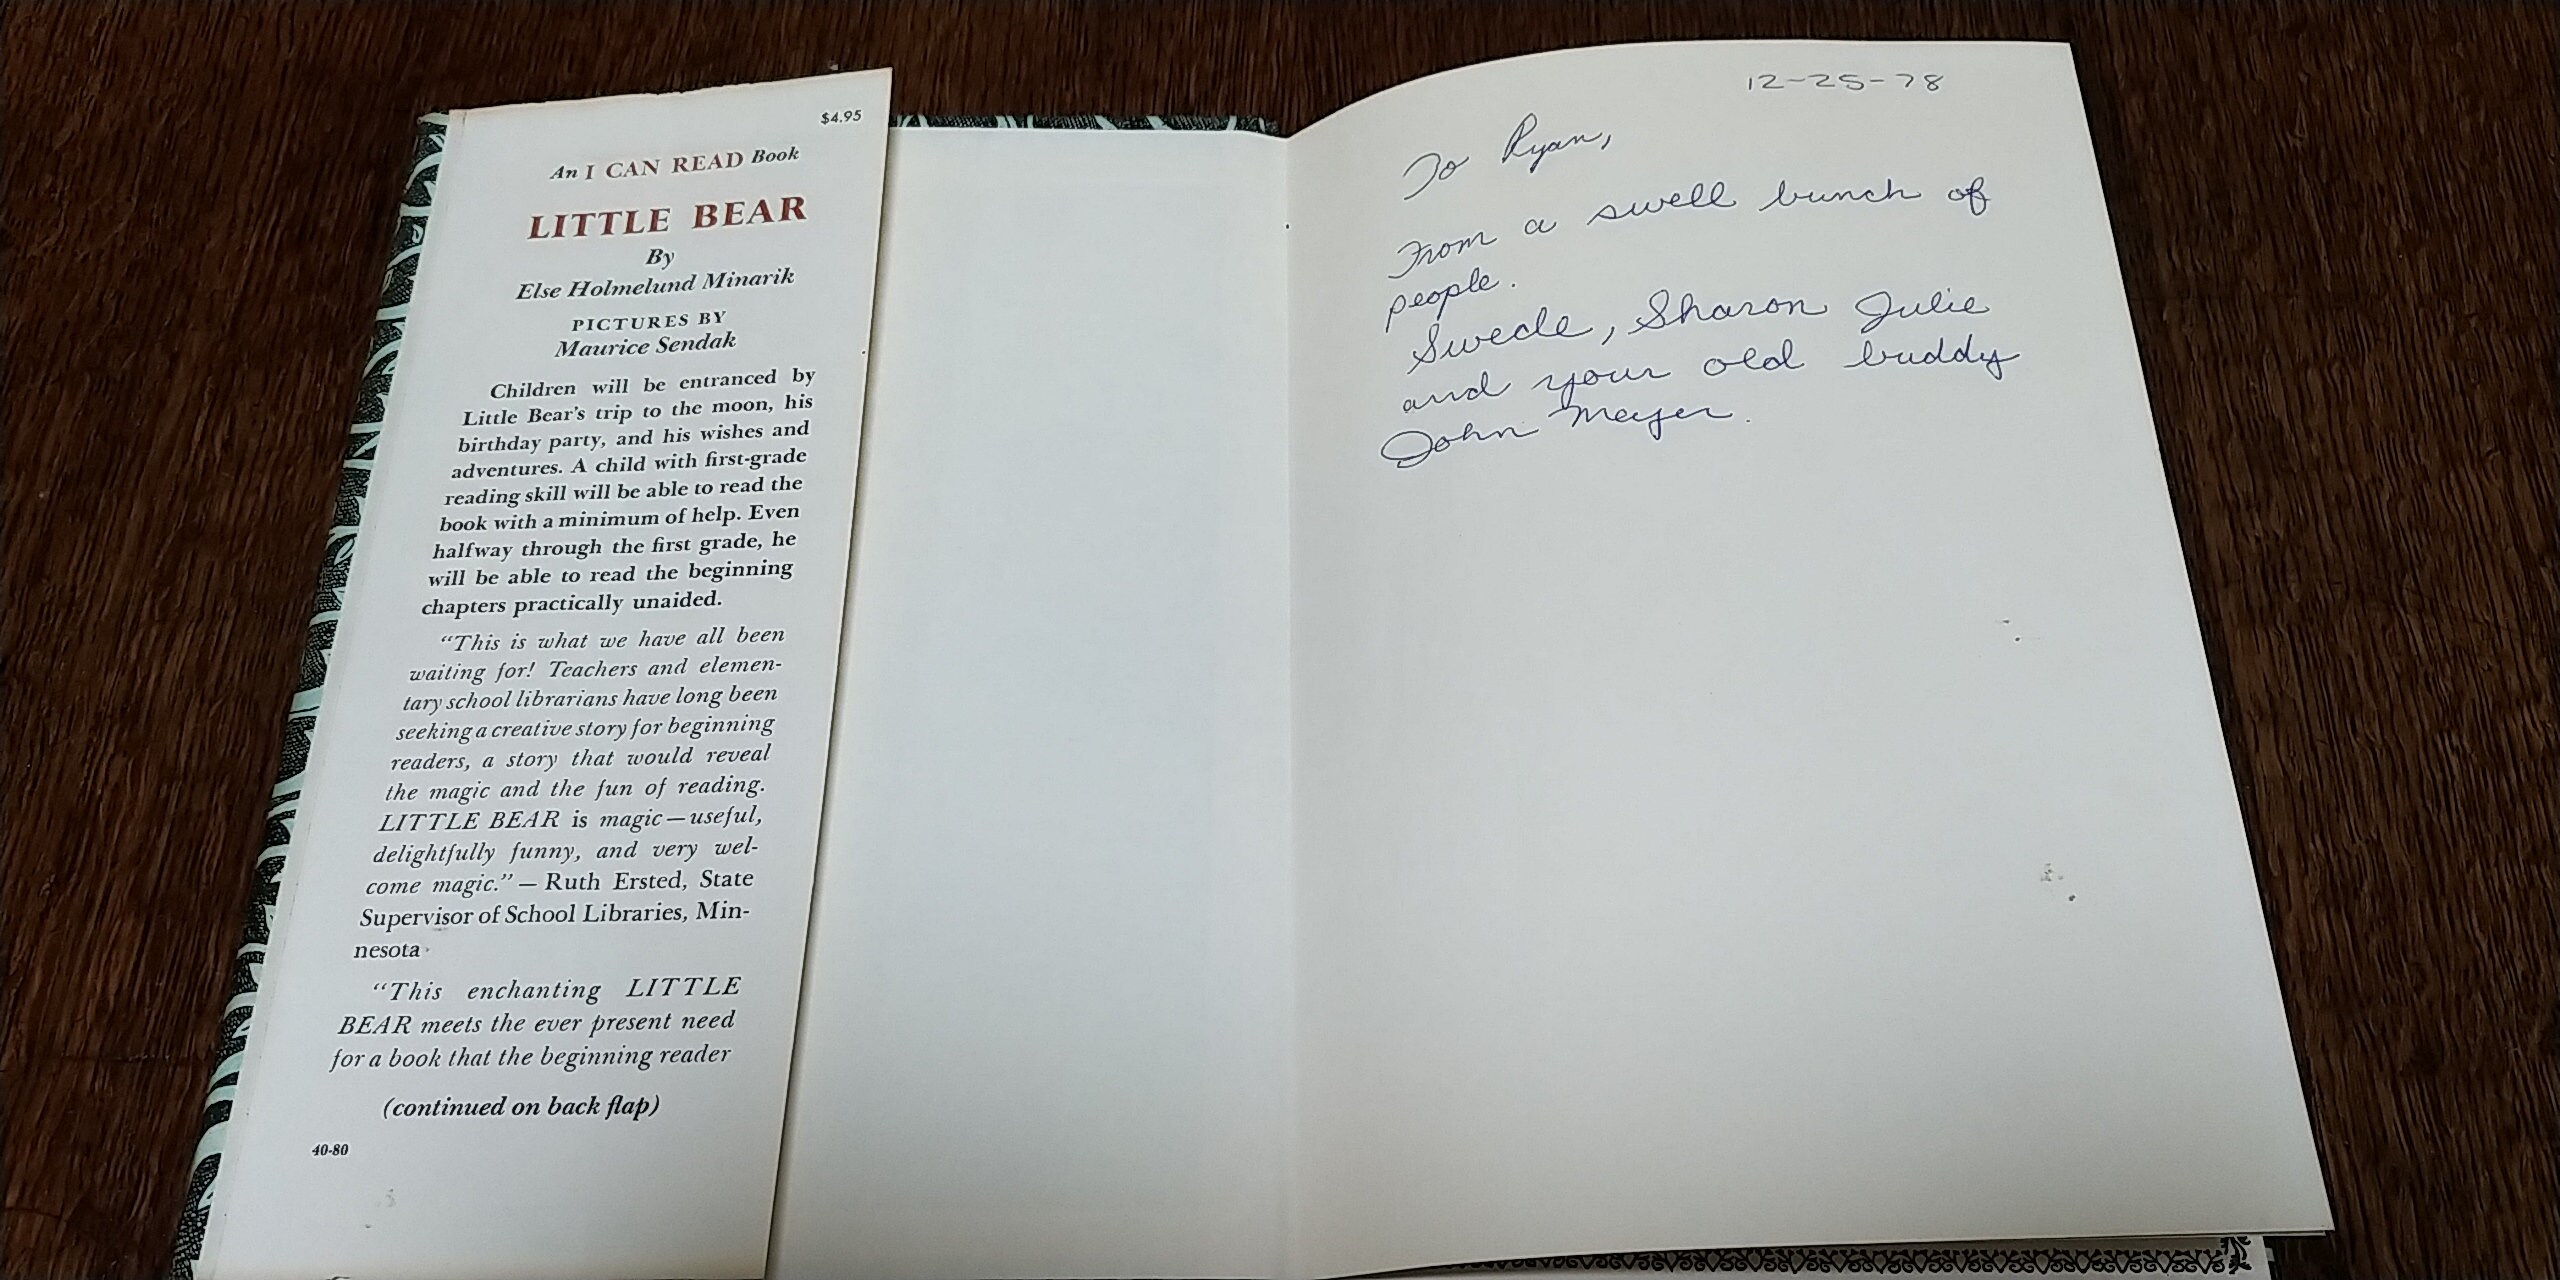 $4.95
An I CAN READ Book
LITTLE BEAR
By
Else Holmelund Minarik
PICTURES BY
Maurice Sendak
Children will be entranced by
Little Bear's trip to the moon, his
birthday party, and his wishes and
adventures. A child with first-grade
reading skill will be able to read the
book with a minimum of help. Even
halfway through the first grade, he
will be able to read the beginning
chapters practically unaided.
"This is what we have all been
waiting for! Teachers and elemen-
tary school librarians have long been
seeking a creative story for beginning
readers, a story that would reveal
the magic and the fun of reading.
LITTLE BEAR is magic—useful,
delightfully funny, and very wel-
come magic."—Ruth Ersted, State
Supervisor of School Libraries, Min-
nesota
"This enchanting LITTLE
BEAR meets the ever present need
for a book that the beginning reader
(continued on back flap)
40-80
12-25-78
To Ryan,
From a swell bunch of
people.
Swede, Sharon Julie
and your old buddy
John Meyer.